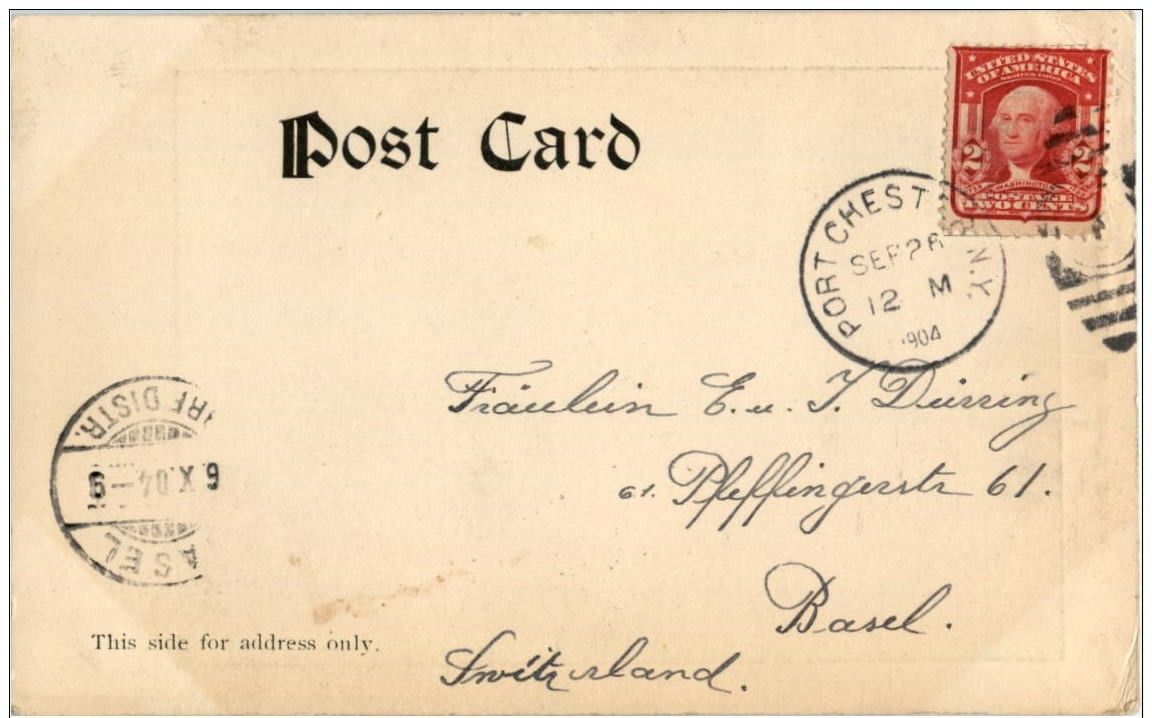 Post Card
UNITED STATES
OF AMERICA
2 2
WASHINGTON
POSTAGE
TWO CENTS
PORT CHEST N.Y.
SEP 26
12 M
1904
Fräulein E. u. J. Dürring
61. Pfeffingerstr 61.
Basel.
Switzerland.
DISTR.
6 X 04 – 9
ASEL
This side for address only.